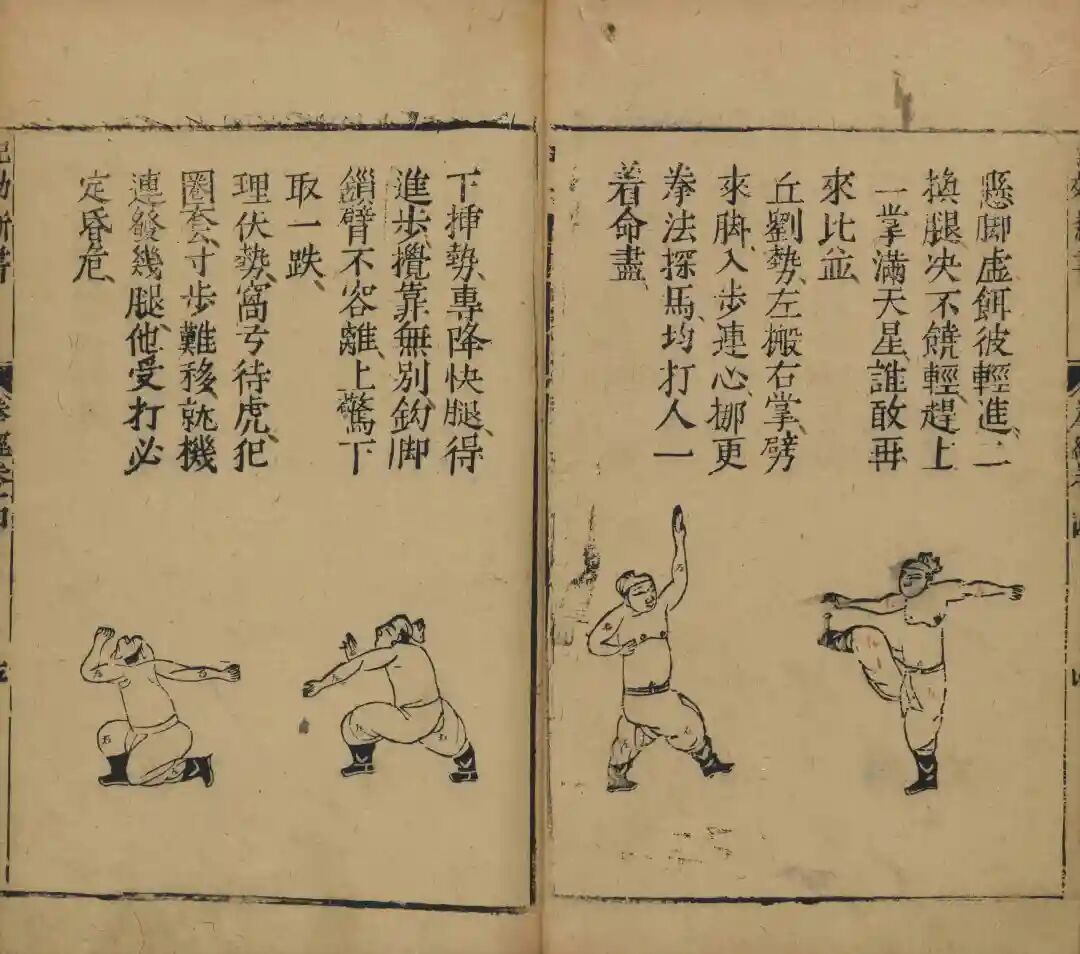 懸脚虛餌彼輕進、二
換腿决不饒輕、趕上
一掌滿天星、誰敢再
來比並、
丘劉勢、左搬右掌、劈
來脚、入步連心、挪更
拳法探馬、均打人一
着命盡、
下揷勢、專降快腿、得
進步、攪靠無別、鈎脚
鎖臂不容離、上驚下
取一跌、
理伏勢、窩弓待虎、犯
圈套、寸步難移、就機
連發幾腿、他受打必
定昏危、
紀効新書
拳經卷十四